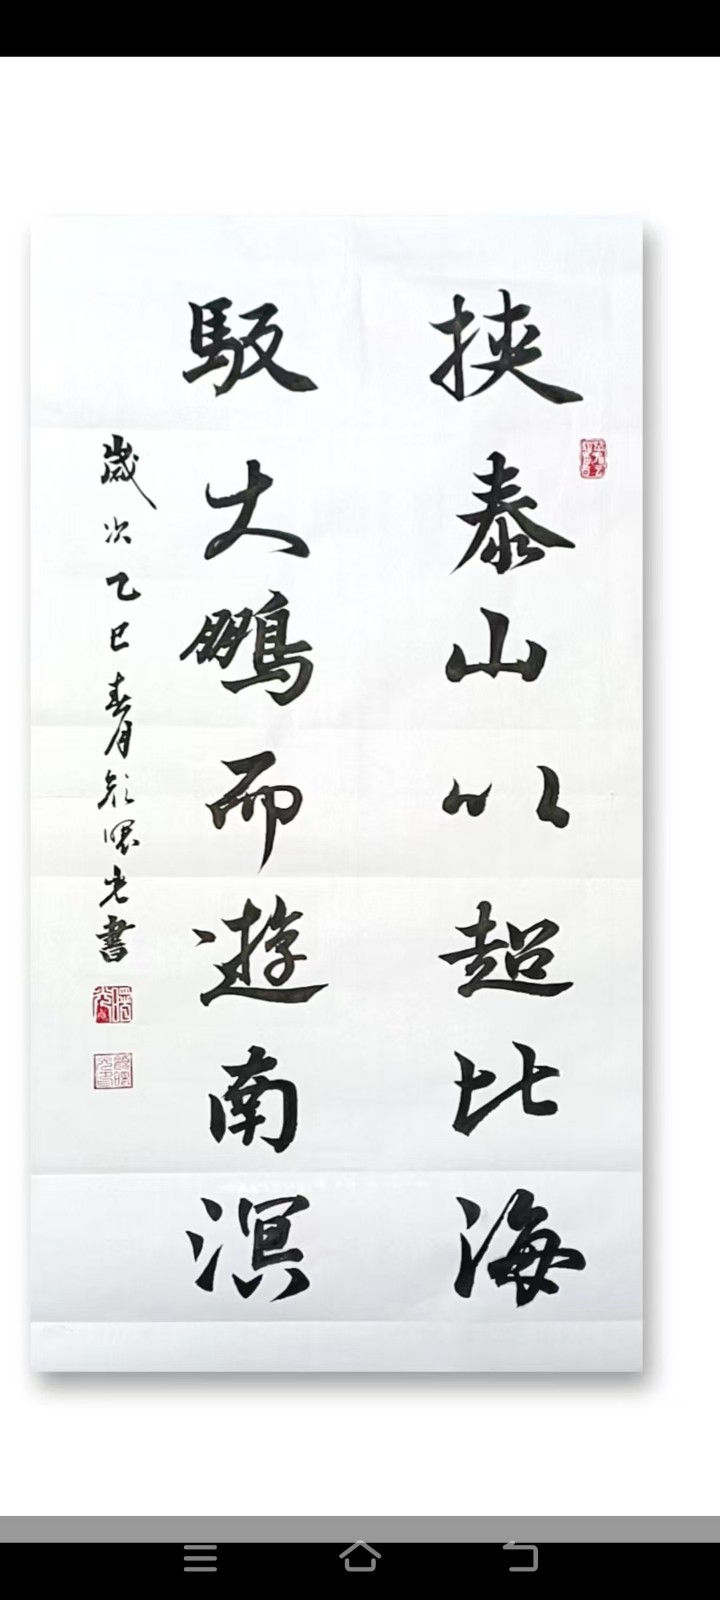 挾泰山以超北海
馭大鵬而遊南溟
歲次乙巳春月顏曙光書